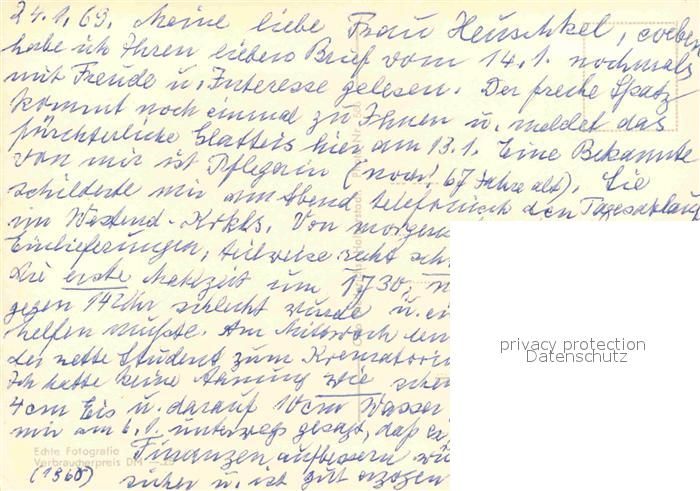 24.1.69. Meine liebe Frau Heuschkel, soeben
habe ich Ihren lieben Brief vom 14.1. nochmals
mit Freude u. Interesse gelesen. Der freche Spatz
kommt noch einmal zu Ihnen u. meldet das
fürchterliche Glatteis hier am 13.1. Eine Bekannte
von mir ist Pflegerin (noch! 67 Jahre alt). Sie
schilderte mir am Abend telefonisch den Tagesablauf
im Westend-Krkhs. Von morgens
Einlieferungen, teilweise recht
Die erste Mahlzeit um 1730,
gegen 14 Uhr schlecht wurde u.
helfen mußte. Am Mittwoch
der nette Student zum
Ich hatte keine Ahnung wie
4cm Eis u. darauf 10cm Wasser
mir am 6.1. unterwegs gesagt, daß er
Finanzen aufbessern
sicher u. ist gut erzogen
Echte Fotografie
Verbraucherpreis DM -.25
(1968)
privacy protection
Datenschutz